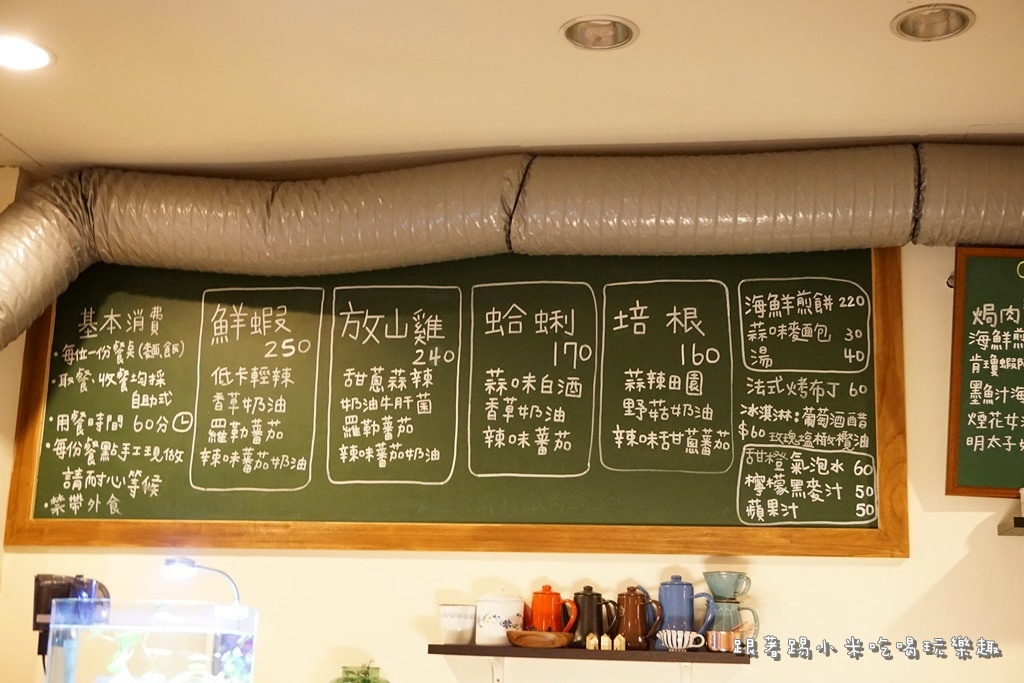 基本消費
・每位一份餐点(麵,飯)
・取餐、收餐均採
自助式
・用餐時間 60分
・每份餐點手工現做
請耐心等候
・禁帶外食
鮮蝦
250
低卡輕辣
香草奶油
羅勒蕃茄
辣味蕃茄奶油
放山雞
240
甜蔥蒜辣
奶油牛肝菌
羅勒蕃茄
辣味蕃茄奶油
蛤蜊
170
蒜味白酒
香草奶油
辣味蕃茄
培根
160
蒜辣田園
野菇奶油
辣味甜蔥蕃茄
海鮮煎餅 220
蒜味麥麵包 30
湯 40
法式烤布丁 60
冰淇淋:葡萄酒醋
$60 玫瑰鹽橄欖油
甜橙氣泡水 60
檸檬黑麥汁 50
蘋果汁 50
焗肉
海鮮煎
墨魚汁海
煙花女
明太子
跟著踢小米吃喝玩樂趣